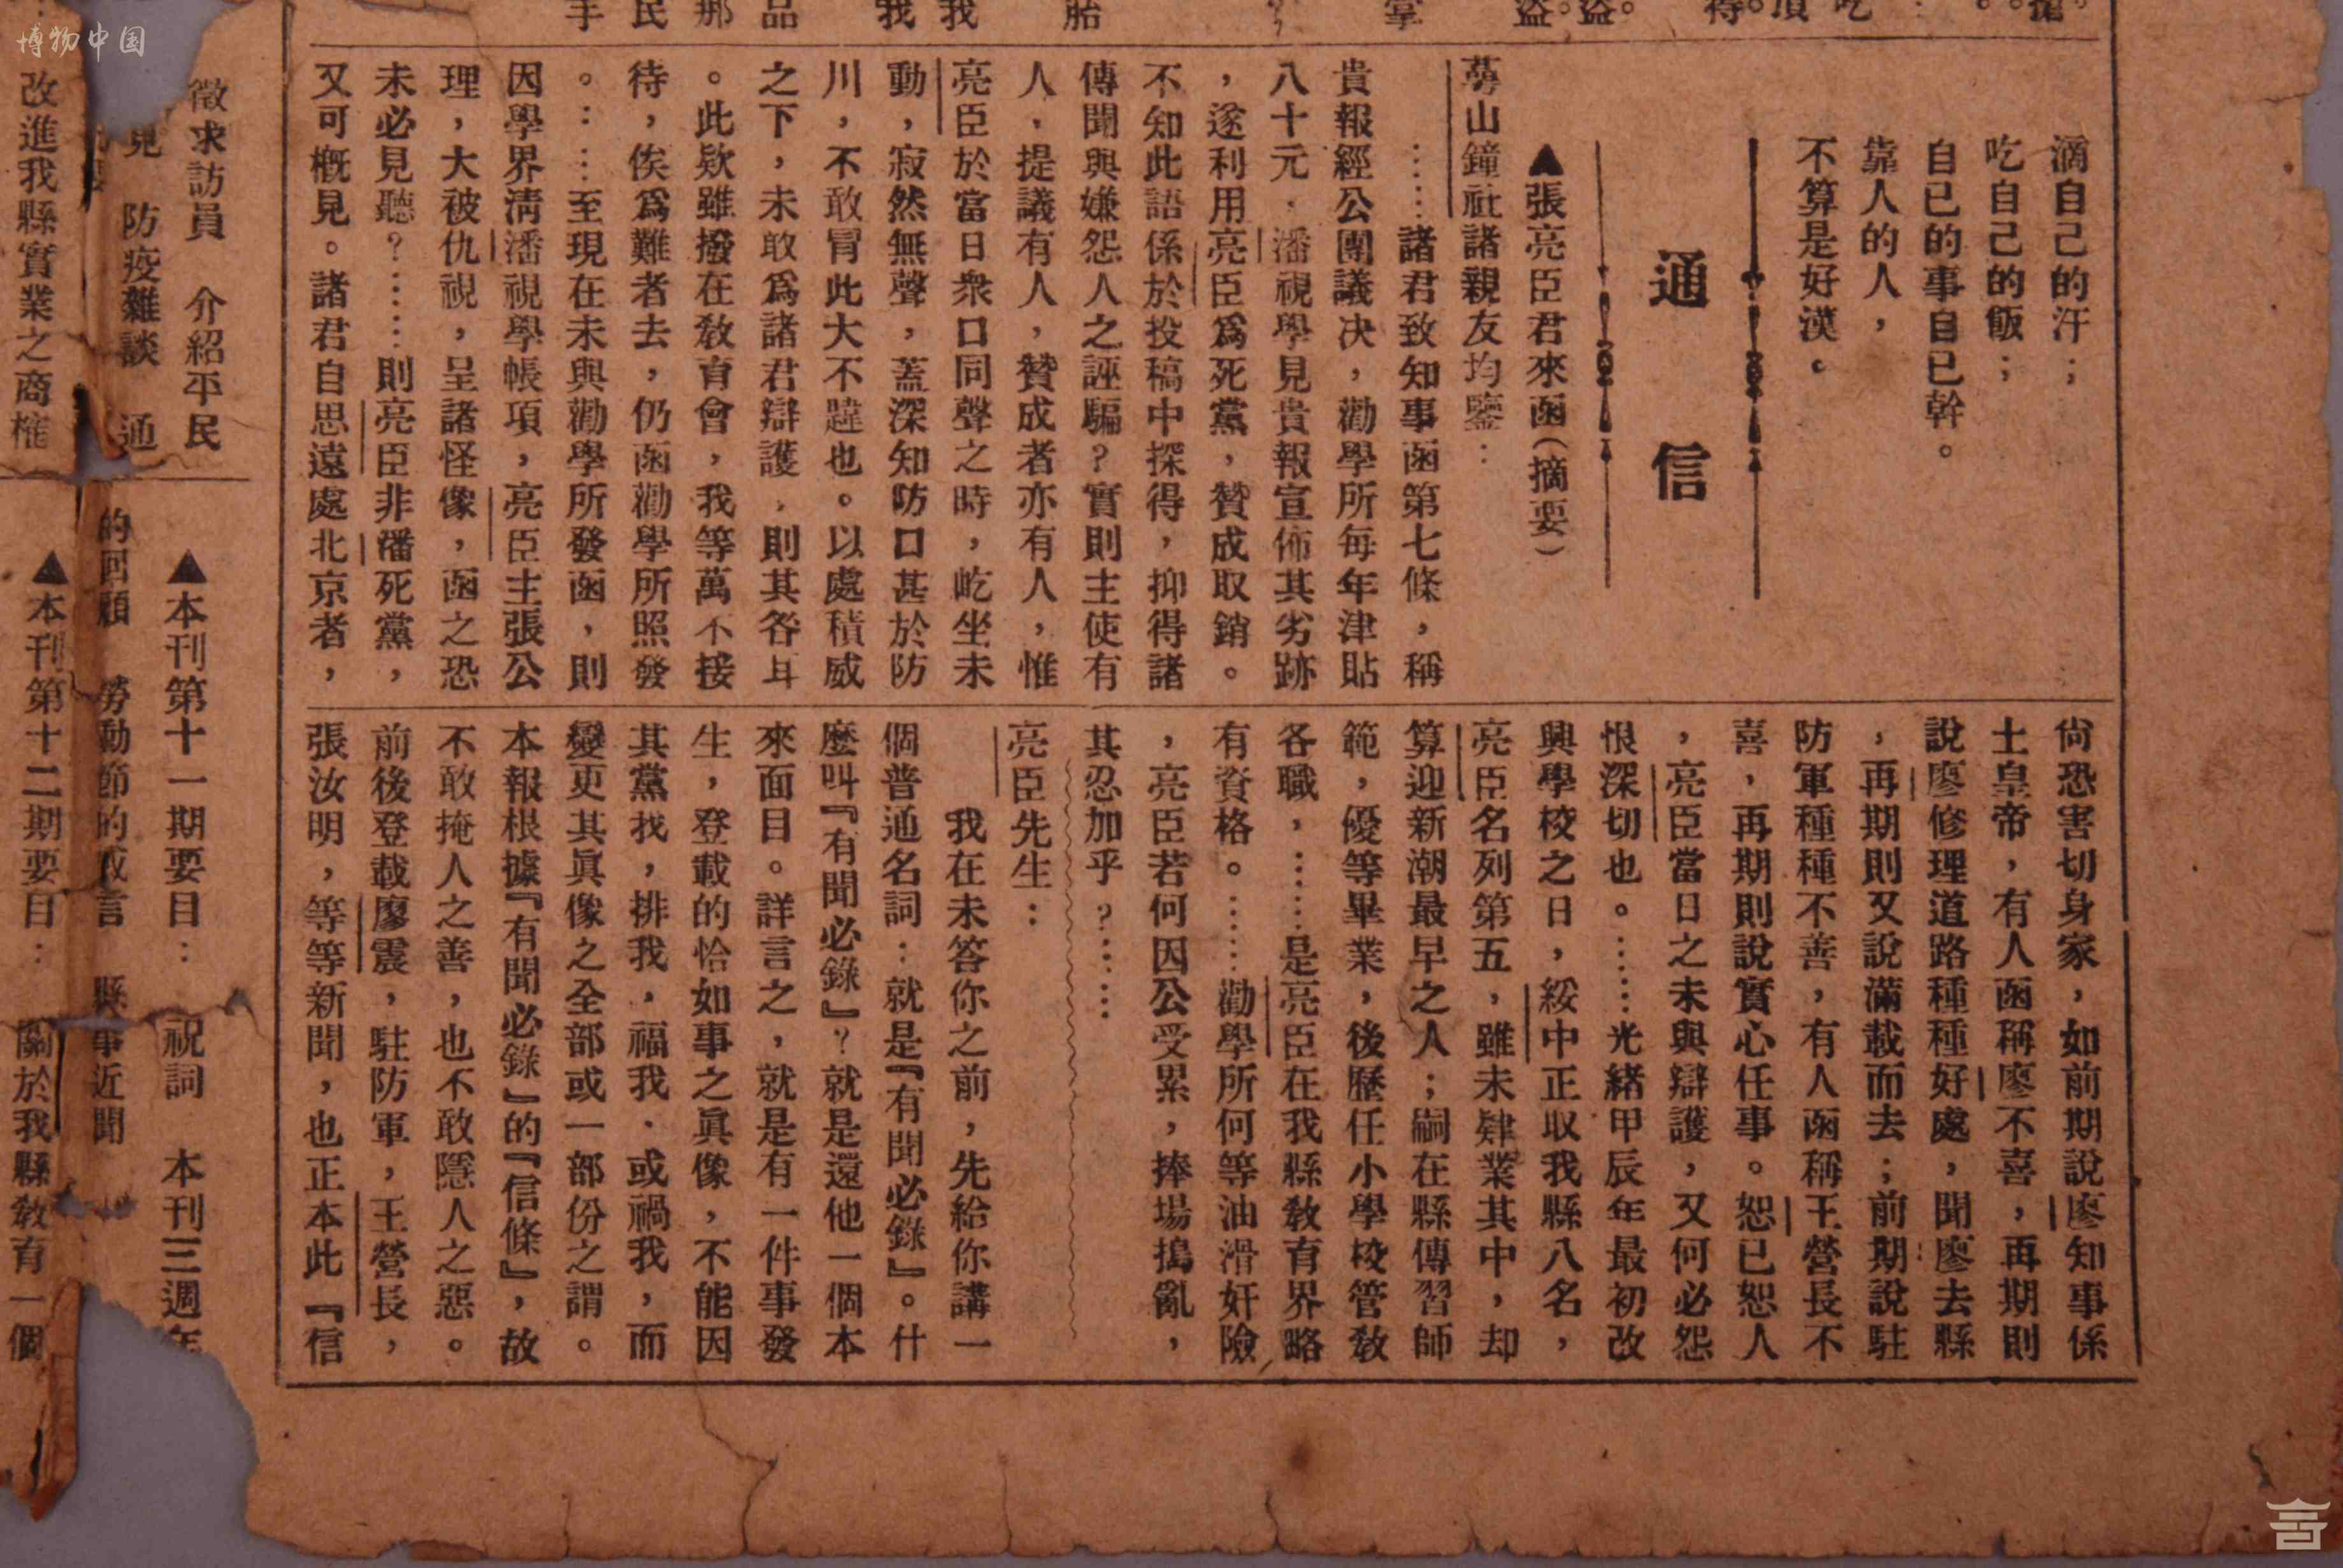 博物中国
滴自己的汗；
吃自己的飯；
自已的事自已幹。
靠人的人，
不算是好漢。
通信
▲張亮臣君來函（摘要）
山鐘社諸親友均鑒：
……諸君致知事函第七條，稱
貴報經公團議决，勸學所每年津貼
八十元，潘視學見貴報宣佈其劣跡
，遂利用亮臣爲死黨，贊成取銷。
不知此語係於投稿中探得，抑得諸
傳聞與嫌怨人之誣騙？實則主使有
人，提議有人，贊成者亦有人，惟
亮臣於當日衆口同聲之時，屹坐未
動，寂然無聲，蓋深知防口甚於防
川，不敢冒此大不韙也。以處積威
之下，未敢爲諸君辯護，則其咎耳
。此欵雖撥在敎育會，我等萬不接
待，俟爲難者去，仍函勸學所照發
。……至現在未與勸學所發函，則
因學界淸潘視學帳項，亮臣主張公
理，大被仇視，呈諸怪像，函之恐
未必見聽？……則亮臣非潘死黨，
又可槪見。諸君自思遠處北京者，
尙恐害切身家，如前期說廖知事係
土皇帝，有人函稱廖不喜，再期則
說廖修理道路種種好處，聞廖去縣
，再期則又說滿載而去；前期說駐
防軍種種不善，有人函稱王營長不
喜，再期則說實心任事。恕已恕人
，亮臣當日之未與辯護，又何必怨
恨深切也。……光緒甲辰年最初改
興學校之日，綏中正取我縣八名，
亮臣名列第五，雖未肄業其中，却
算迎新潮最早之人；嗣在縣傳習師
範，優等畢業，後歷任小學校管敎
各職，……是亮臣在我縣敎育界略
有資格。……勸學所何等油滑奸險
，亮臣若何因公受累，捧場搗亂，
其忍加乎？……
亮臣先生：
我在未答你之前，先給你講一
個普通名詞：就是『有聞必錄』。什
麼叫『有聞必錄』？就是還他一個本
來面目。詳言之，就是有一件事發
生，登載的恰如事之眞像，不能因
其黨我，排我，福我，或禍我，而
變更其眞像之全部或一部份之謂。
本報根據『有聞必錄』的『信條』，故
不敢掩人之善，也不敢隱人之惡。
前後登載廖震，駐防軍，王營長，
張汝明，等等新聞，也正本此『信
徵求訪員　介紹平民
見　防疫雜談　通
改進我縣實業之商榷
▲本刊第十一期要目：　祝詞　本刊三週年
的回顧　勞動節的　言　縣事近聞
▲本刊第十二期要目：　關於我縣敎育一個